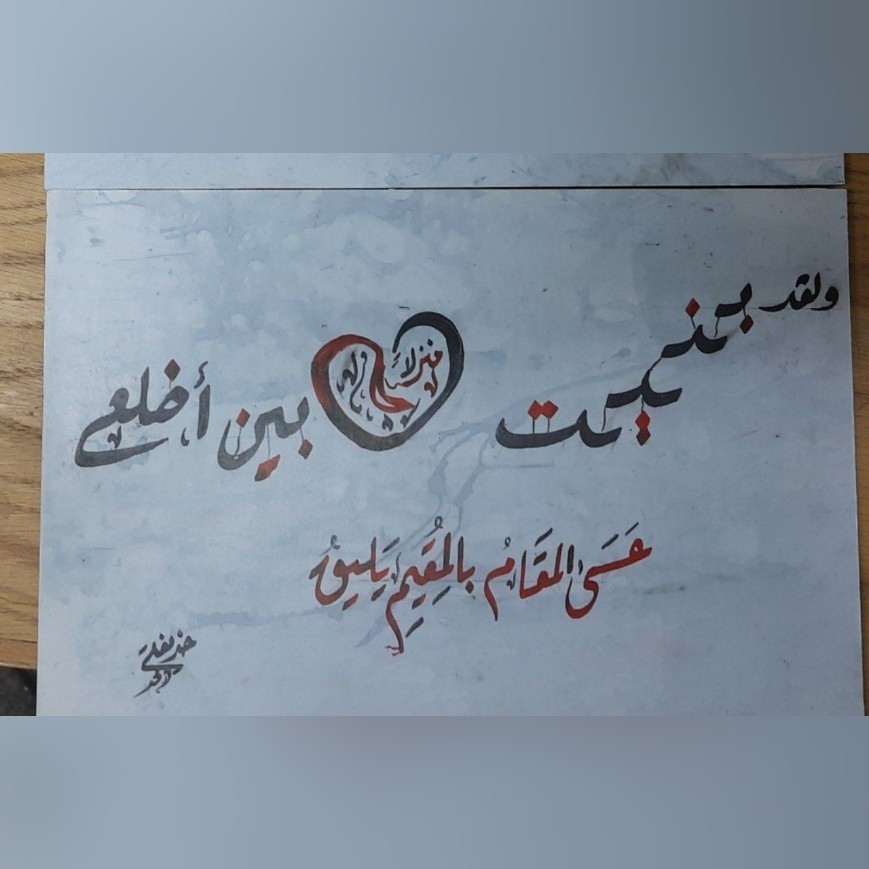 ولقد بنيت منزلاً بين أضلعي
عَسَى المَقَامُ بالمُقِيمِ يَليقُ